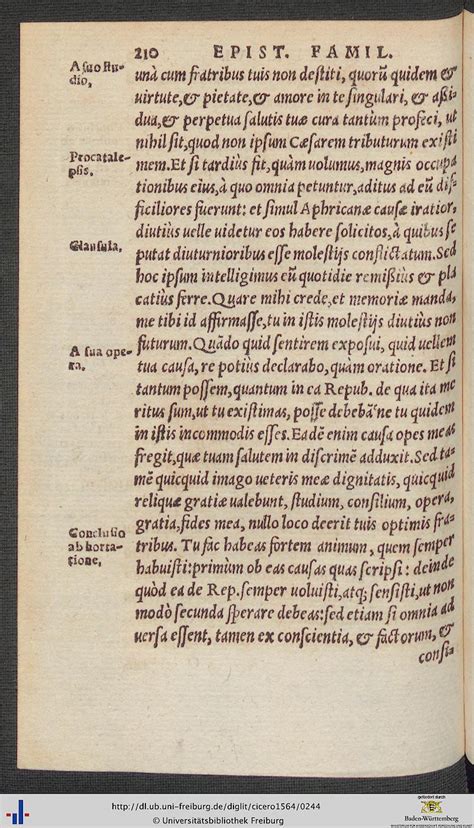 210 EPIST. FAMIL.
A suo stu-
dio,
unà cum fratribus tuis non destiti, quorũ quidem &
uirtute, & pietate, & amore in te singulari, & aßi-
dua, & perpetua salutis tuæ cura tantùm profeci, ut
nihil sit, quod non ipsum Cæsarem tributurum existi
Procatale-
psis,
mem. Et si tardiùs fit, quàm uolumus, magnis occupa
tionibus eius, à quo omnia petuntur, aditus ad eũ dif-
ficiliores fuerunt: et simul Aphricanæ causæ iratior,
diutiùs uelle uidetur eos habere solicitos, à quibus se
Clausula,
putat diuturnioribus esse molestijs conflictatum. Sed
hoc ipsum intelligimus eũ quotidie remißius & pla
catiùs ferre. Quare mihi crede, et memoriæ manda,
me tibi id affirmasse, tu in istis molestijs diutiùs non
futurum. Quãdo quid sentirem exposui, quid uellem
A sua ope-
ra,
tua causa, re potiùs declarabo, quàm oratione. Et si
tantum possem, quantum in ea Repub. de qua ita me
ritus sum, ut tu existimas, posse debebã: ne tu quidem
in istis incommodis esses. Eadẽ enim causa opes meas
fregit, quæ tuam salutem in discrimẽ adduxit. Sed ta-
mẽ quicquid imago ueteris meæ dignitatis, quicquid
reliquæ gratiæ ualebunt, studium, consilium, opera,
gratia, fides mea, nullo loco deerit tuis optimis fra-
Conclusio
ab horta-
tione,
tribus. Tu fac habeas fortem animum, quem semper
habuisti: primùm ob eas causas quas scripsi: deinde
quòd ea de Rep. semper uoluisti, atq; sensisti, ut non
modò secunda sperare debeas: sed etiam si omnia ad
uersa essent, tamen ex conscientia, & factorum, &
consi-
http://dl.ub.uni-freiburg.de/diglit/cicero1564/0244
© Universitätsbibliothek Freiburg
gefördert durch
Baden-Württemberg